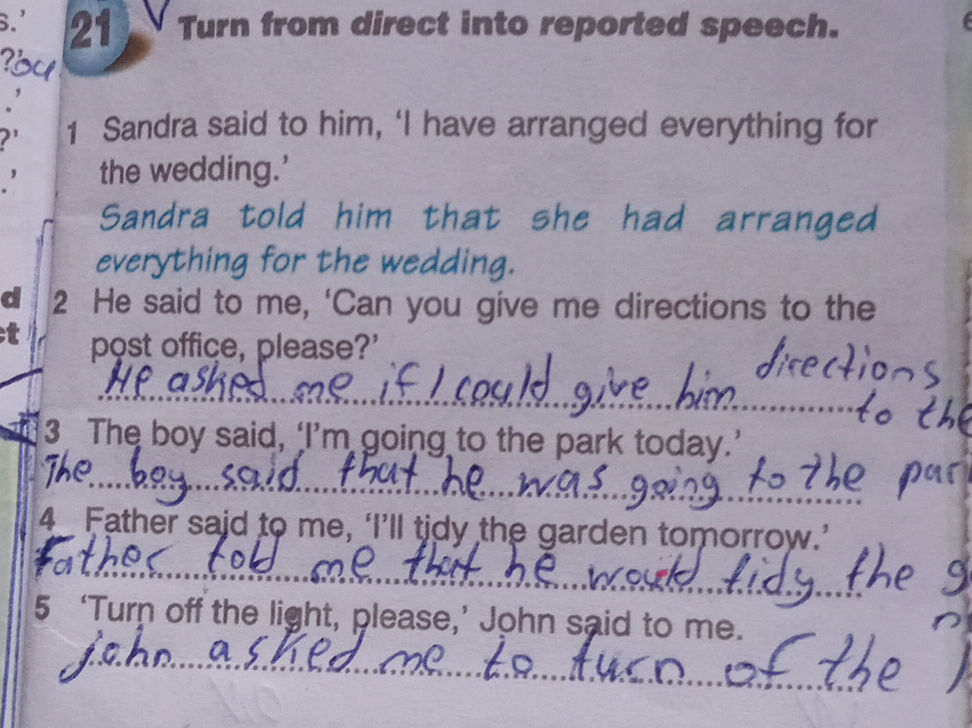 s.' 21 Turn from direct into reported speech.
?'
.'
?' 1 Sandra said to him, 'I have arranged everything for
.' the wedding.'
Sandra told him that she had arranged
everything for the wedding.
d 2 He said to me, 'Can you give me directions to the
ct post office, please?'
He asked me if I could give him directions
to the
3 The boy said, 'I'm going to the park today.'
The boy said that he was going to the par
4 Father said to me, 'I'll tidy the garden tomorrow.'
Father told me that he would tidy the g
5 'Turn off the light, please,' John said to me.
john asked me to turn of the l